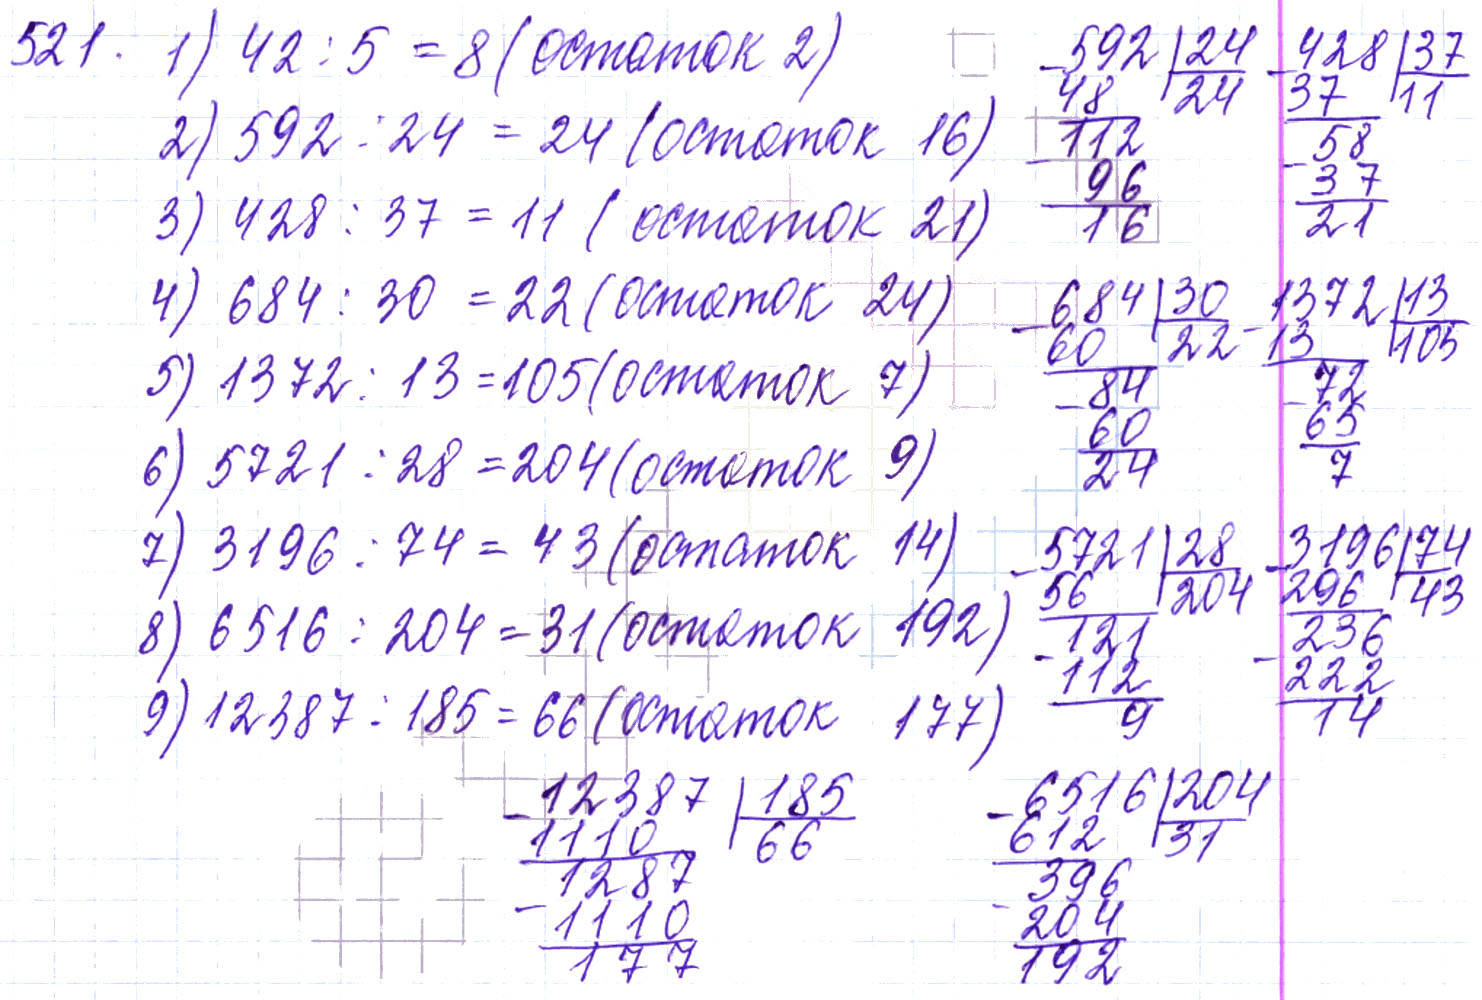 521. 1) 42 : 5 = 8 (остаток 2)
2) 592 : 24 = 24 (остаток 16)
3) 428 : 37 = 11 (остаток 21)
4) 684 : 30 = 22 (остаток 24)
5) 1372 : 13 = 105 (остаток 7)
6) 5721 : 28 = 204 (остаток 9)
7) 3196 : 74 = 43 (остаток 14)
8) 6516 : 204 = 31 (остаток 192)
9) 12387 : 185 = 66 (остаток 177)
-592 | 24
48 24
-112
96
16
-428 | 37
37 11
-58
37
21
-684 | 30
60 22
-84
60
24
-1372 | 13
13 105
-72
65
7
-5721 | 28
56 204
-121
112
9
-3196 | 74
296 43
-236
222
14
-12387 | 185
1110 66
-1287
1110
177
-6516 | 204
612 31
-396
204
192